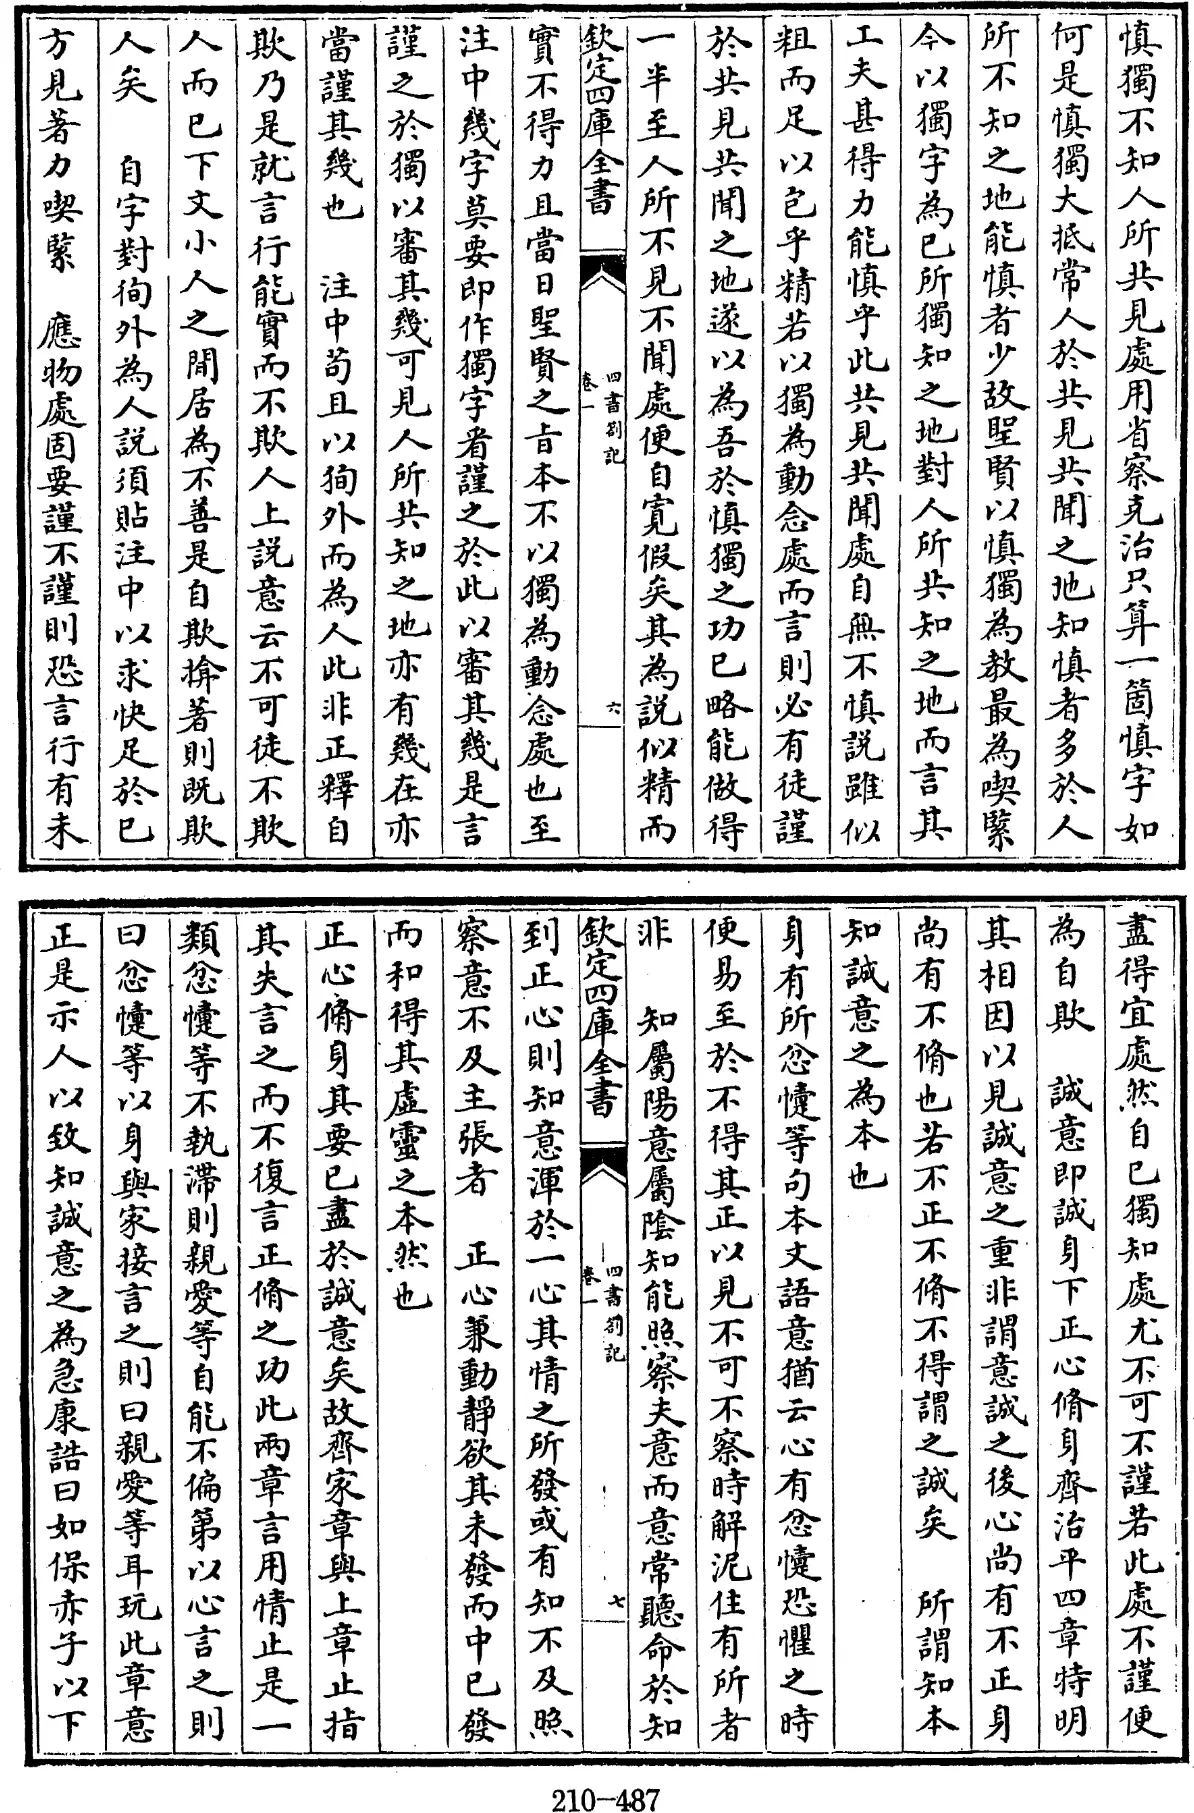 慎獨不知人所共見處用省察克治只算一箇慎字如
何是慎獨大抵常人於共見共聞之地知慎者多於人
所不知之地能慎者少故聖賢以慎獨為教最為喫緊
今以獨字為已所獨知之地對人所共知之地而言其
工夫甚得力能慎乎此共見共聞處自無不慎説雖似
粗而足以包乎精若以獨為動念處而言則必有徒謹
於共見共聞之地遂以為吾於慎獨之功已略能做得
一半至人所不見不聞處便自寛假矣其為説似精而
欽定四庫全書
四書劄記
卷一
六
實不得力且當日聖賢之旨本不以獨為動念處也至
注中幾字莫要即作獨字看謹之於此以審其幾是言
謹之於獨以審其幾可見人所共知之地亦有幾在亦
當謹其幾也　注中苟且以狥外而為人此非正釋自
欺乃是就言行能實而不欺人上説意云不可徒不欺
人而已下文小人之間居為不善是自欺揜著則既欺
人矣　自字對徇外為人説須貼注中以求快足於已
方見著力喫緊　應物處固要謹不謹則恐言行有未
盡得宜處然自已獨知處尤不可不謹若此處不謹便
為自欺　誠意即誠身下正心脩身齊治平四章特明
其相因以見誠意之重非謂意誠之後心尚有不正身
尚有不脩也若不正不脩不得謂之誠矣　所謂知本
知誠意之為本也
身有所忿懥等句本文語意猶云心有忿懥恐懼之時
便易至於不得其正以見不可不察時解泥住有所者
非　知屬陽意屬陰知能照察夫意而意常聽命於知
欽定四庫全書
四書劄記
卷一
七
到正心則知意渾於一心其情之所發或有知不及照
察意不及主張者　正心兼動靜欲其未發而中已發
而和得其虛靈之本然也
正心脩身其要已盡於誠意矣故齊家章與上章止指
其失言之而不復言正脩之功此兩章言用情止是一
類忿懥等不執滯則親愛等自能不偏第以心言之則
曰忿懥等以身與家接言之則曰親愛等耳玩此章意
正是示人以致知誠意之為急康誥曰如保赤子以下
210-487